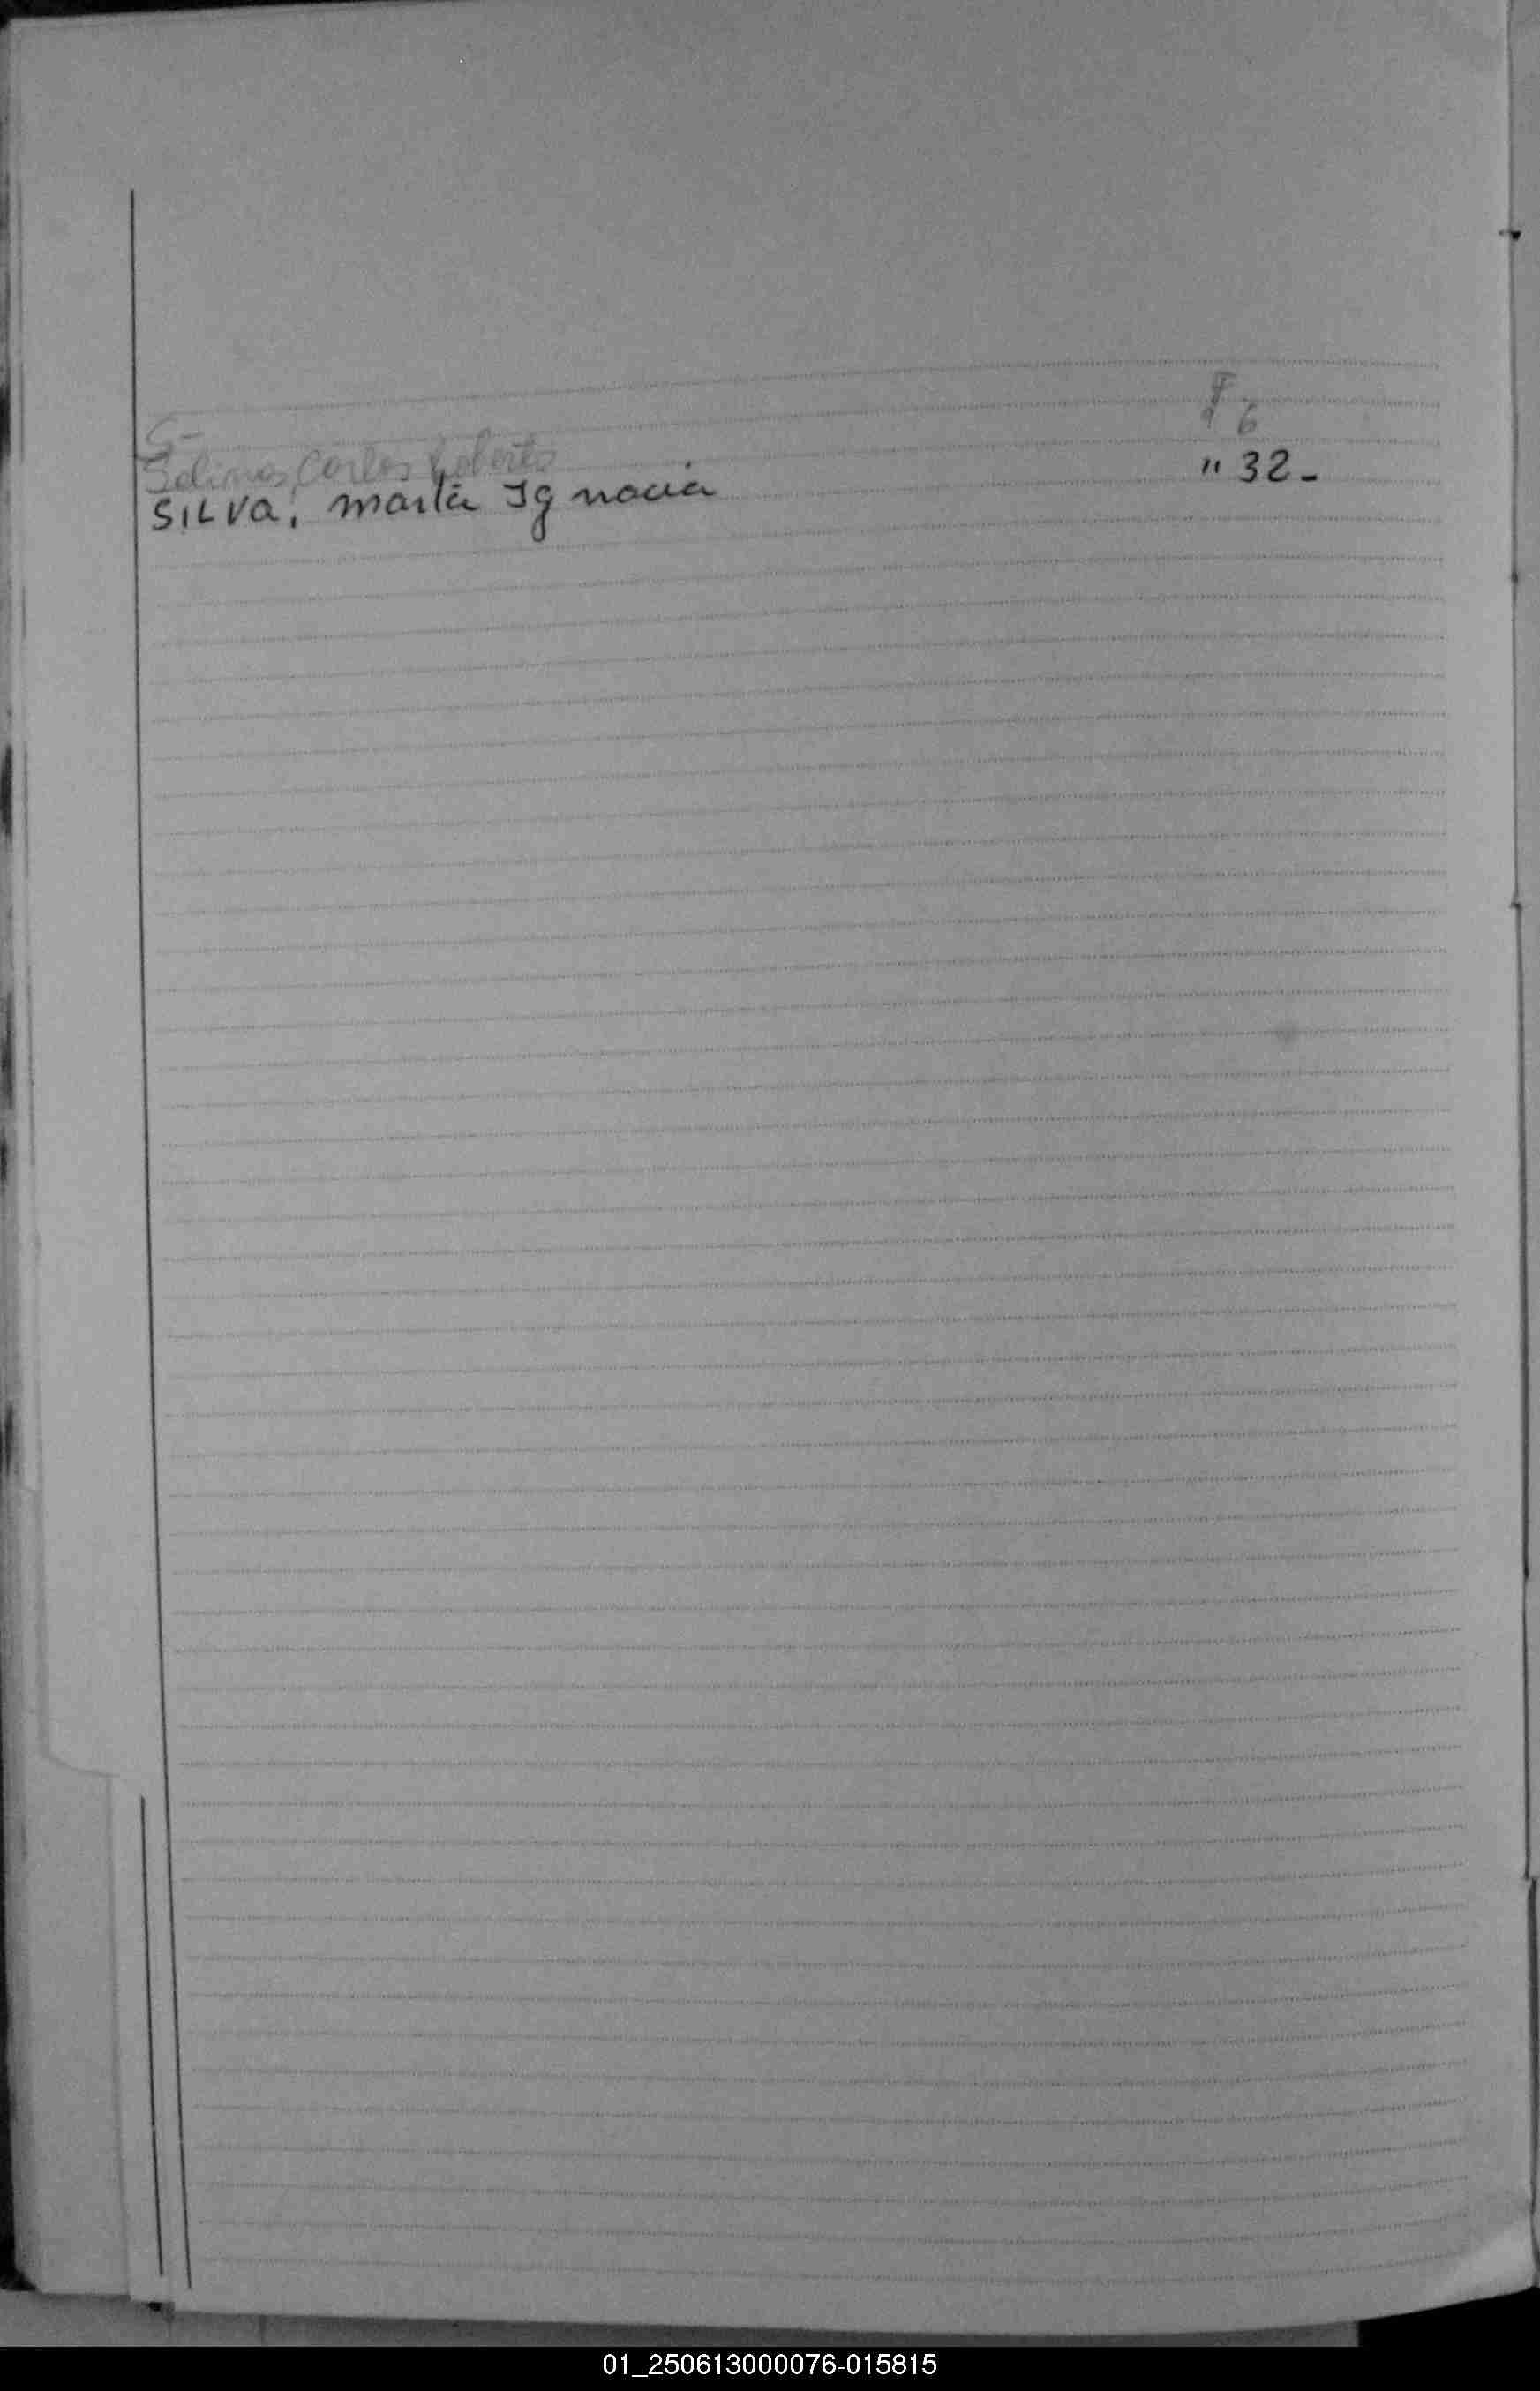 S- F
Salinas, Carlos Roberto " 6
SILVA, Marta Ignacia " 32-
01_250613000076-015815